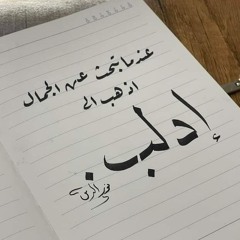 عندما تبحث عن الجمال
اذهب الى
إدلب.